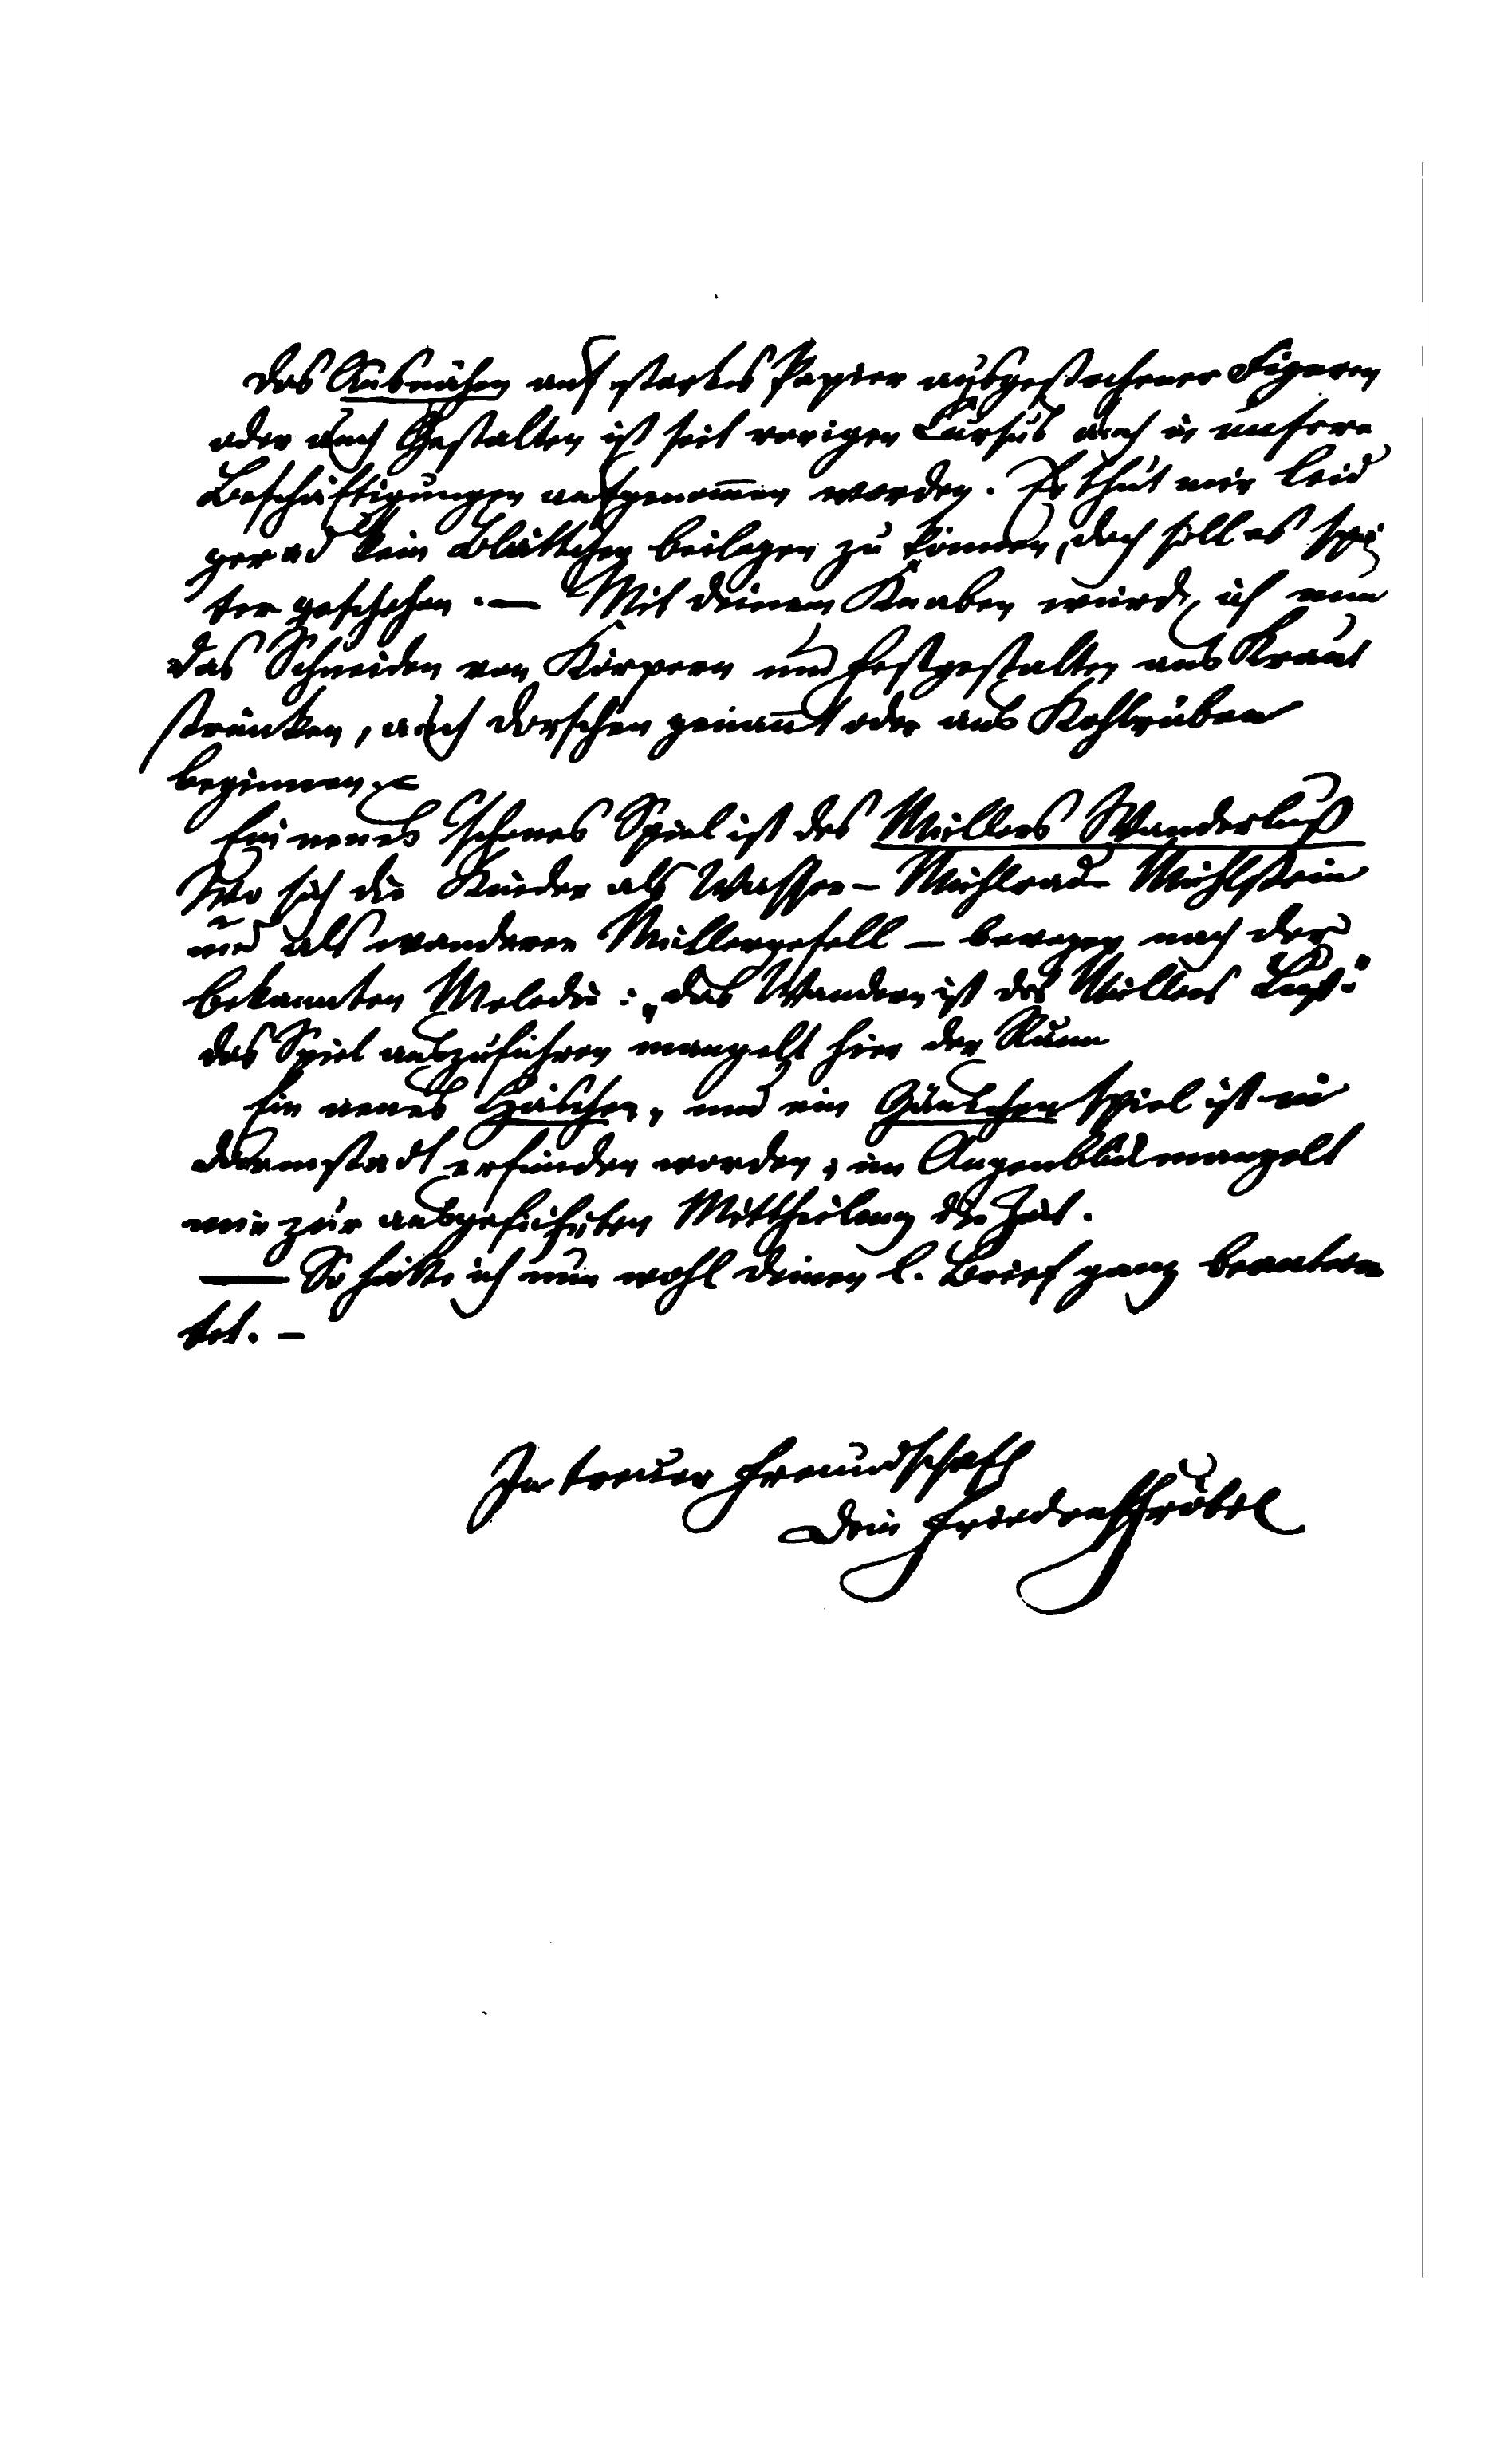 Das Ausnähen auf starkes Papier ausgestochener Figuren
oder auch Gestalten ist seit vorigen Cursus auch in unsere
Beschäftigungen aufgenom̅en worden. Es thut mir leid
gerad kein Blättchen beilegen zu können, doch soll es spä
ter geschehen. — Mit deinem Knaben würde ich nun
das Schneiden von Körpern und Festgestalten aus Kraut
strünken, auch Dorschen genan̅t oder aus Kohlrüben
beginnen. —
Ein neues schönes Spiel ist des Müllers Wanderlust
Wo sich die Kinder als Wasser - Mühlrad - Mühlstein
und als wanderer Müllergesell - bewegen nach der
bekannten Melodie: „das Wandern ist des Müllers Lust."
das Spiel auszuführen mangelt hier der Raum
Ein neues Häschen, und ein Gänschen spiel ist in
Darmstadt erfunden worden, im Augenblick mangelt
mir zur ausgeführten Mittheilung die Zeit.
— So hätte ich nun wohl deinen l. Brief ganz beantwor
tet. -
In treuer Freundschaft
Dein Friedrich Fröbel